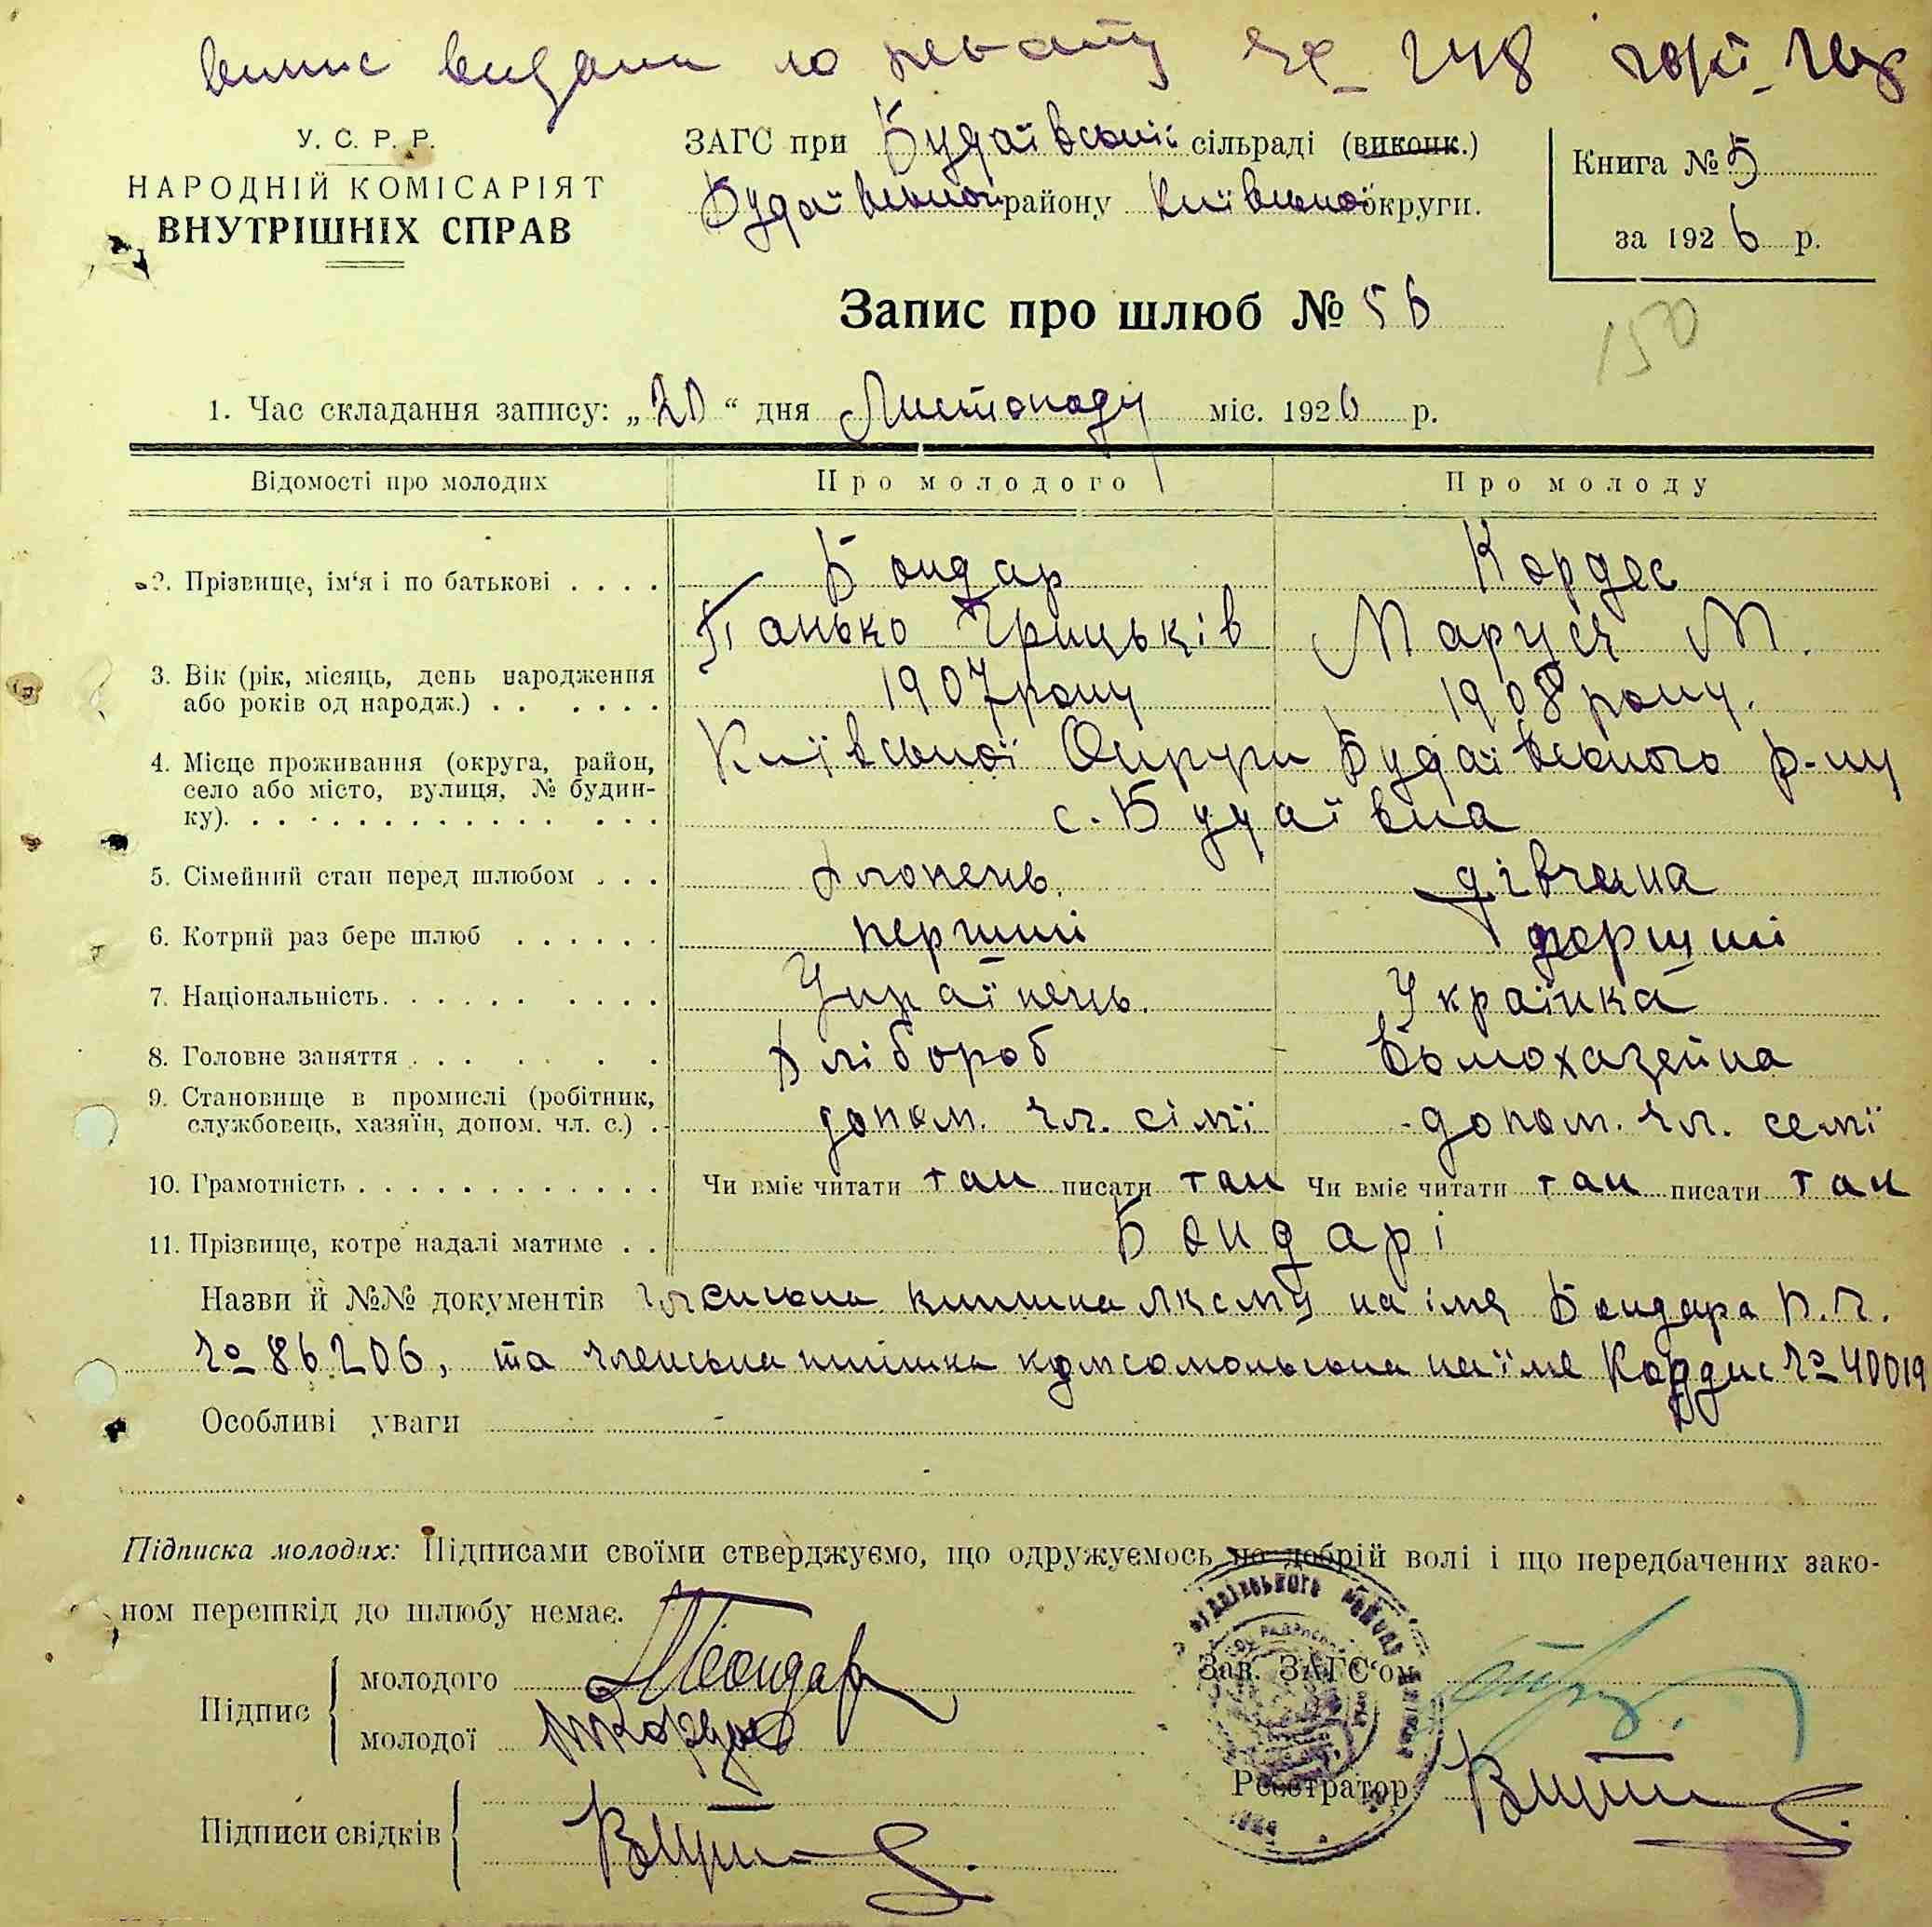 випис видана
У. С. Р. Р.
НАРОДНІЙ КОМІСАРІЯТ
ВНУТРІШНІХ СПРАВ
ЗАГС при Будаївській сільраді (виконк.)
Будаївського району Київської округи.
Книга № 5
за 1926 р.
Запис про шлюб № 56
150
1. Час складання запису: „20“ дня Листопаду міс. 1926 р.
Відомості про молодих Про молодого Про молоду
2. Прізвище, ім‘я і по батькові . . . . Бондар Кордес
Панько Грицьків Маруся М.
3. Вік (рік, місяць, день народження
або років од народж.) . . . . . . 1907 року 1908 року.
4. Місце проживання (округа, район, Київської Округи Будаївського р-ну
село або місто, вулиця, № будин-
ку). . . . . . . . . . . . . . . с. Будаївка
5. Сімейний стан перед шлюбом . . . хлопець. дівчина
6. Котрий раз бере шлюб . . . . . . перший перший
7. Національність. . . . . . . . . . Українець. Українка
8. Головне заняття . . . . . . . Хлібороб Домохазейка
9. Становище в промислі (робітник,
службовець, хазяїн, допом. чл. с.) . допом. чл. сімї допом. чл. семї
10. Грамотність . . . . . . . . . . . . Чи вміє читати так писати так Чи вміє читати так писати так
11. Прізвище, котре надалі матиме . . Бондарі
Назви й №№ документів членська книжка ЛКСМУ на імя Бондара П. Г.
№ 86206, та членська книжка комсомольська на імя Кордис № 40019
Особливі уваги
Підписка молодих: Підписами своїми стверджуємо, що одружуємось по добрій волі і що передбачених зако-
ном перешкід до шлюбу немає.
Підпис
молодого ПБондар
молодої МКордес
Зав. ЗАГС‘ом
Реєстратор
Підписи свідків